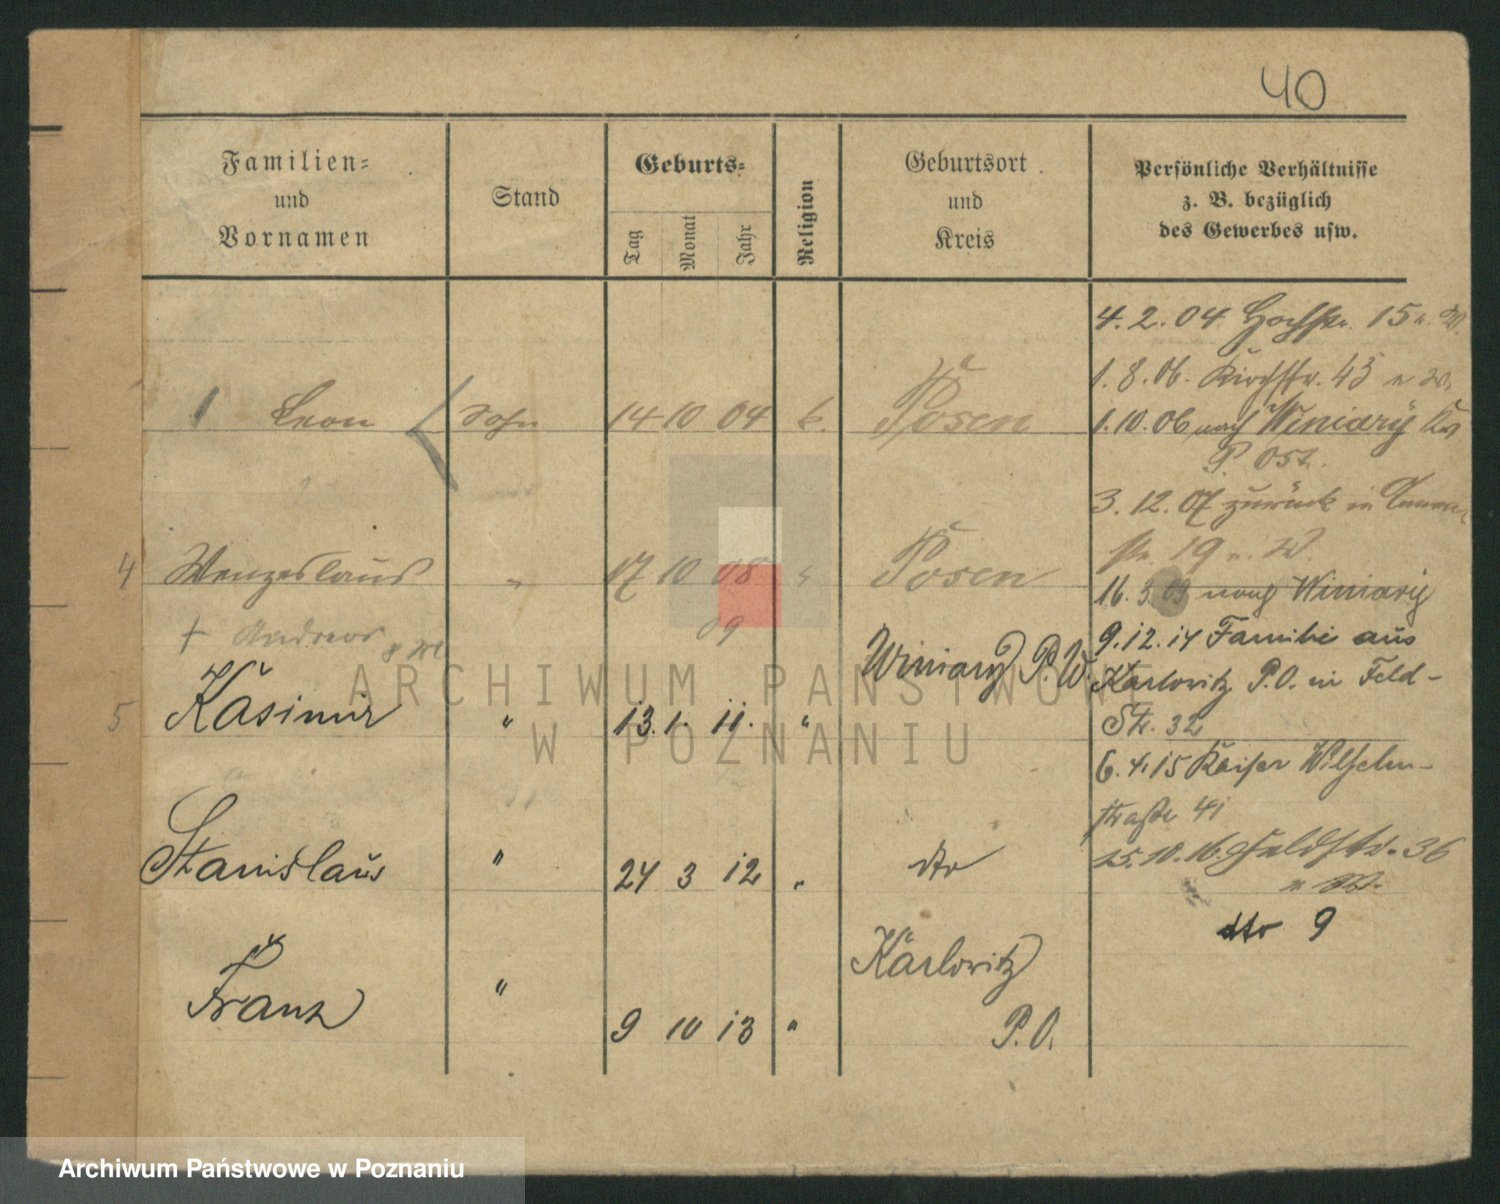 40
Familien-
und
Vornamen
Stand
Geburts-
Tag
Monat
Jahr
Religion
Geburtsort
und
Kreis
Persönliche Verhältnisse
z. B. bezüglich
des Gewerbes usw.
4. 2. 04 Hochstr. 15 n. W.
1. 8. 06. Kirchstr. 43 n W.
1 Leon Sohn 14 10 04 k. Posen
1. 10. 06 nach Winiary
P. Ost.
3. 12. 07 zurück in
str. 19 n. W.
4 Wenzeslaus " 17 10 08 " Posen
16. 3. 09 nach Winiary
† Andreas 8 M 09
9. 12. 14 Familie aus
Winiary P. W.
Karlowitz P. O. in Feld-
5 Kasimir " 13. 1. 11. "
Str. 32
6. 4. 15 Kaiser Wilhelm-
straße 41
Stanislaus " 24 3 12 " dto
25. 10. 16. Feldstr. 36
n W.
dto 9
Karlowitz
Franz " 9 10 13 "
P. O.
ARCHIWUM PAŃSTWOWE
W POZNANIU
Archiwum Państwowe w Poznaniu